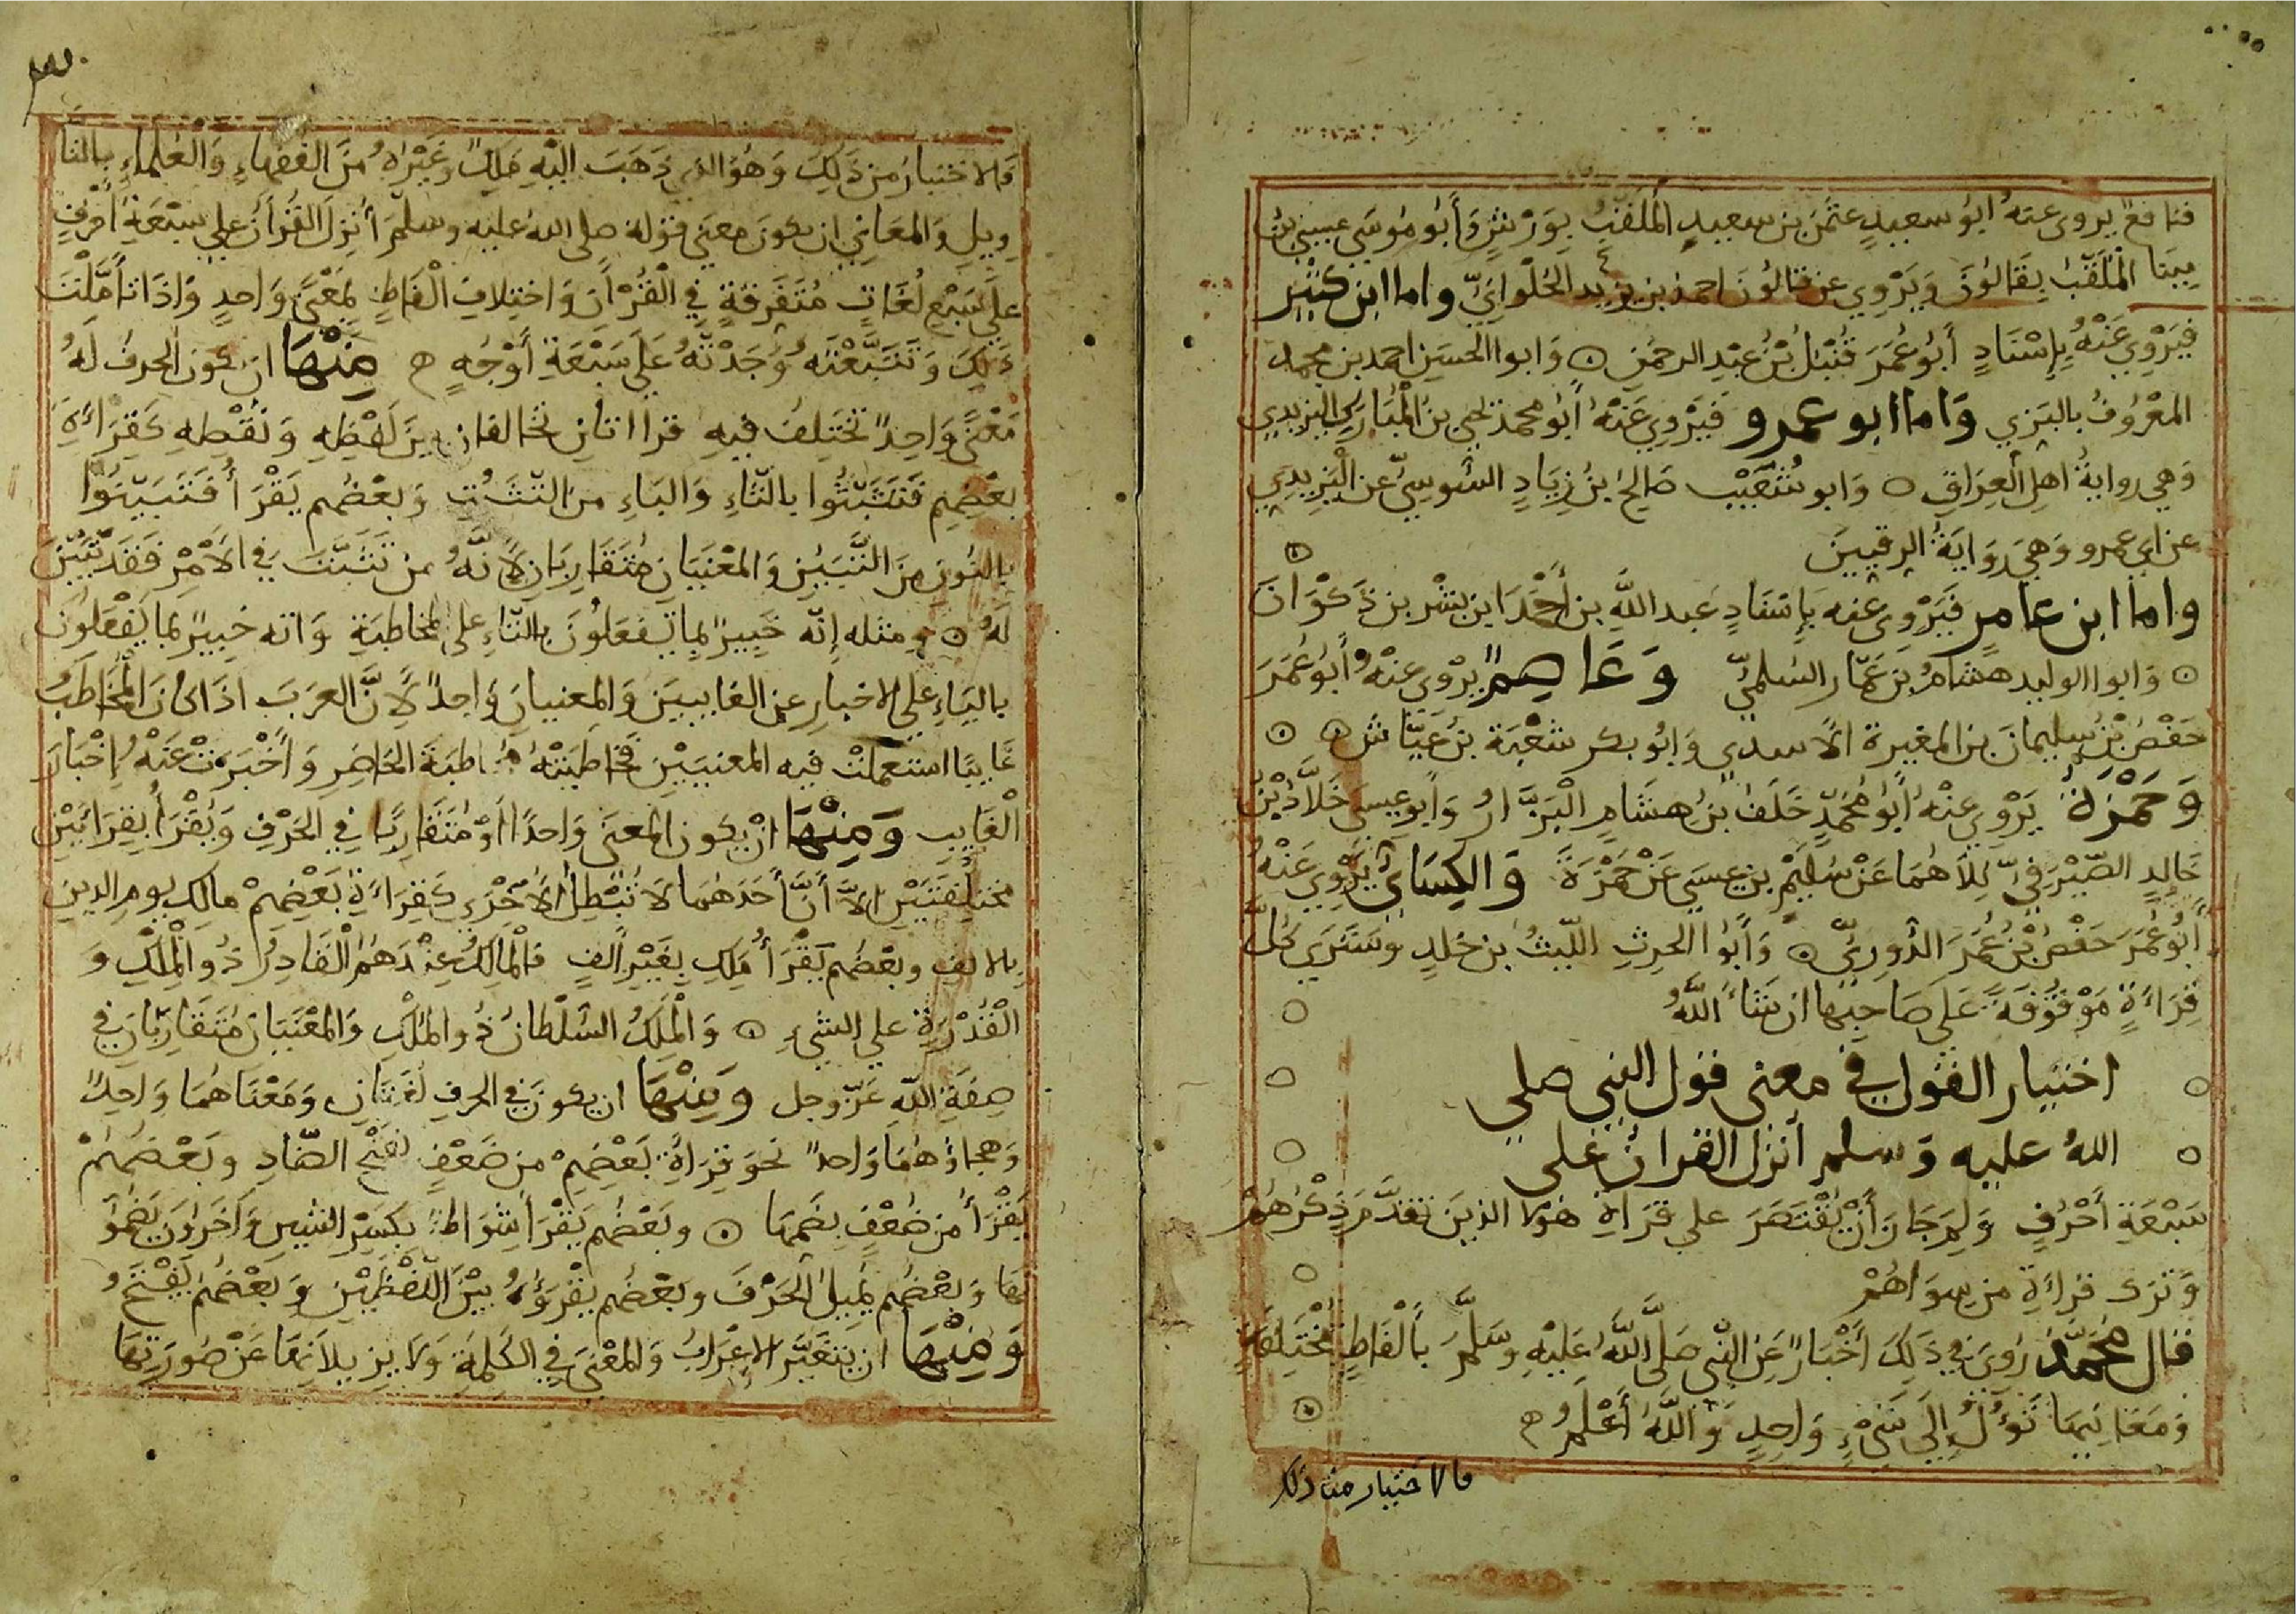 فنافع يروى عنه ابو سعيد عثمن بن سعيد الملقب بورش وأبو موسى عيسى بن
مينا الملقب بقالون ويروي عن قالون احمد بن يزيد الحلواني واما ابن كثير
فيروي عنه بإسناد أبو عمر قنبل بن عبد الرحمن ۞ وابوا الحسين احمد بن محمد
المعروف بالبزي واما ابو عمرو فيروي عنه أبو محمد يحيى بن المبارك اليزيدي
وهي رواية اهل العراق ۞ وابو شعيب صالح بن زياد السوسي عن اليزيدي
عن ابي عمرو وهي رواية الرقيين
واما ابن عامر فيروى عنه بإسناد عبد الله بن أحمد ابن بشر بن ذكوان
۞ وابوا الوليد هشام بن عمار السلمي وعاصم يروي عنه أبو عمر
حفص بن سليمان بن المغيرة الأسدي وابو بكر شعبة بن عياش ۞
وحمزة يروي عنه أبو محمد خلف بن هشام البزار وأبو عيسى خلاد بن
خالد الصيرفي كلاهما عن سليم بن عيسى عن حمزة والكسائي يروي عنه
أبو عمر حفص بن عمر الدوري ۞ وأبوا الحرث الليث بن خلد وسترى كل
قراءة موقوفة على صاحبها ان شاء الله
اختيار القول في معنى قول النبي صلى
الله عليه وسلم أنزل القران على
سبعة أحرف ولم جاز أن يقتصر على قراة هولا الذين تقدم ذكرهم
وترك قراءة من سواهم
قال محمد روى في ذلك أخبار عن النبي صلى الله عليه وسلم بألفاظ مختلفة
ومعانيها تؤل إلى شىء واحد والله أعلم
فالاختيار من ذلك
فالاختيار من ذلك وهو الذي ذهب اليه ملك وغيره من الفقهاء والعلماء بالتا
ويل والمعاني ان يكون معنى قوله صلى الله عليه وسلم أنزل القرأن على سبعة أحرف
على سبع لغات متفرقة في القرأن واختلاف الفاظ بمعنى واحد وإذا تأملت
ذلك وتتبعته وجدته على سبعة أوجه منها ان يكون الحرف له
معنى واحد تختلف فيه قراءتان تخالفان بين لفظه ونقطه كقراءة
بعضهم فتثبتوا بالثاء والباء من التثبت وبعضهم يقرأ فتبينوا
بالنون من التبيين والمعنيان متقاربان لأنه من تثبت في الأمر فقد تبين
له ۞ ومثله إنه خبير بما تفعلون بالتاء على المخاطبة وانه خبير بما يفعلون
بالياء على الاخبار عن الغايبين والمعنيان واحد لأن العرب اذا كان المخاطب
غايبا استعملت فيه المعنيين فخاطبته مخاطبة الحاضر وأخبرت عنه إخبار
الغايب ومنها ان يكون المعنى واحدا أو متقاربا في الحرف ويقرأ بقرائتين
مختلفتين إلا أن أحدهما لا تبطل الأخرى كقراءة بعضهم مالك يوم الدين
بالالف وبعضهم يقرأ ملك بغير ألف فالمالك عندهم القادر ذو الملك و
القدرة على الشيء ۞ والملك السلطان ذو الملك والمعنيان متقاربان في
صفة الله عز وجل ومنها ان يكون في الحرف لغتان ومعناهما واحد
وهجاؤهما واحد نحو قراة بعضهم من ضعف بفتح الضاد وبعضهم
يقرأ من ضعف بضمها ۞ وبعضهم يقرأ شواظ بكسر الشين وآخرون يضمو
نها وبعضهم يميل الحرف وبعضهم يقرؤه بين اللفظين وبعضهم يفتح
ومنها ان يتغير الإعراب والمعنى في الكلمة ولا يزيلانها عن صورتها